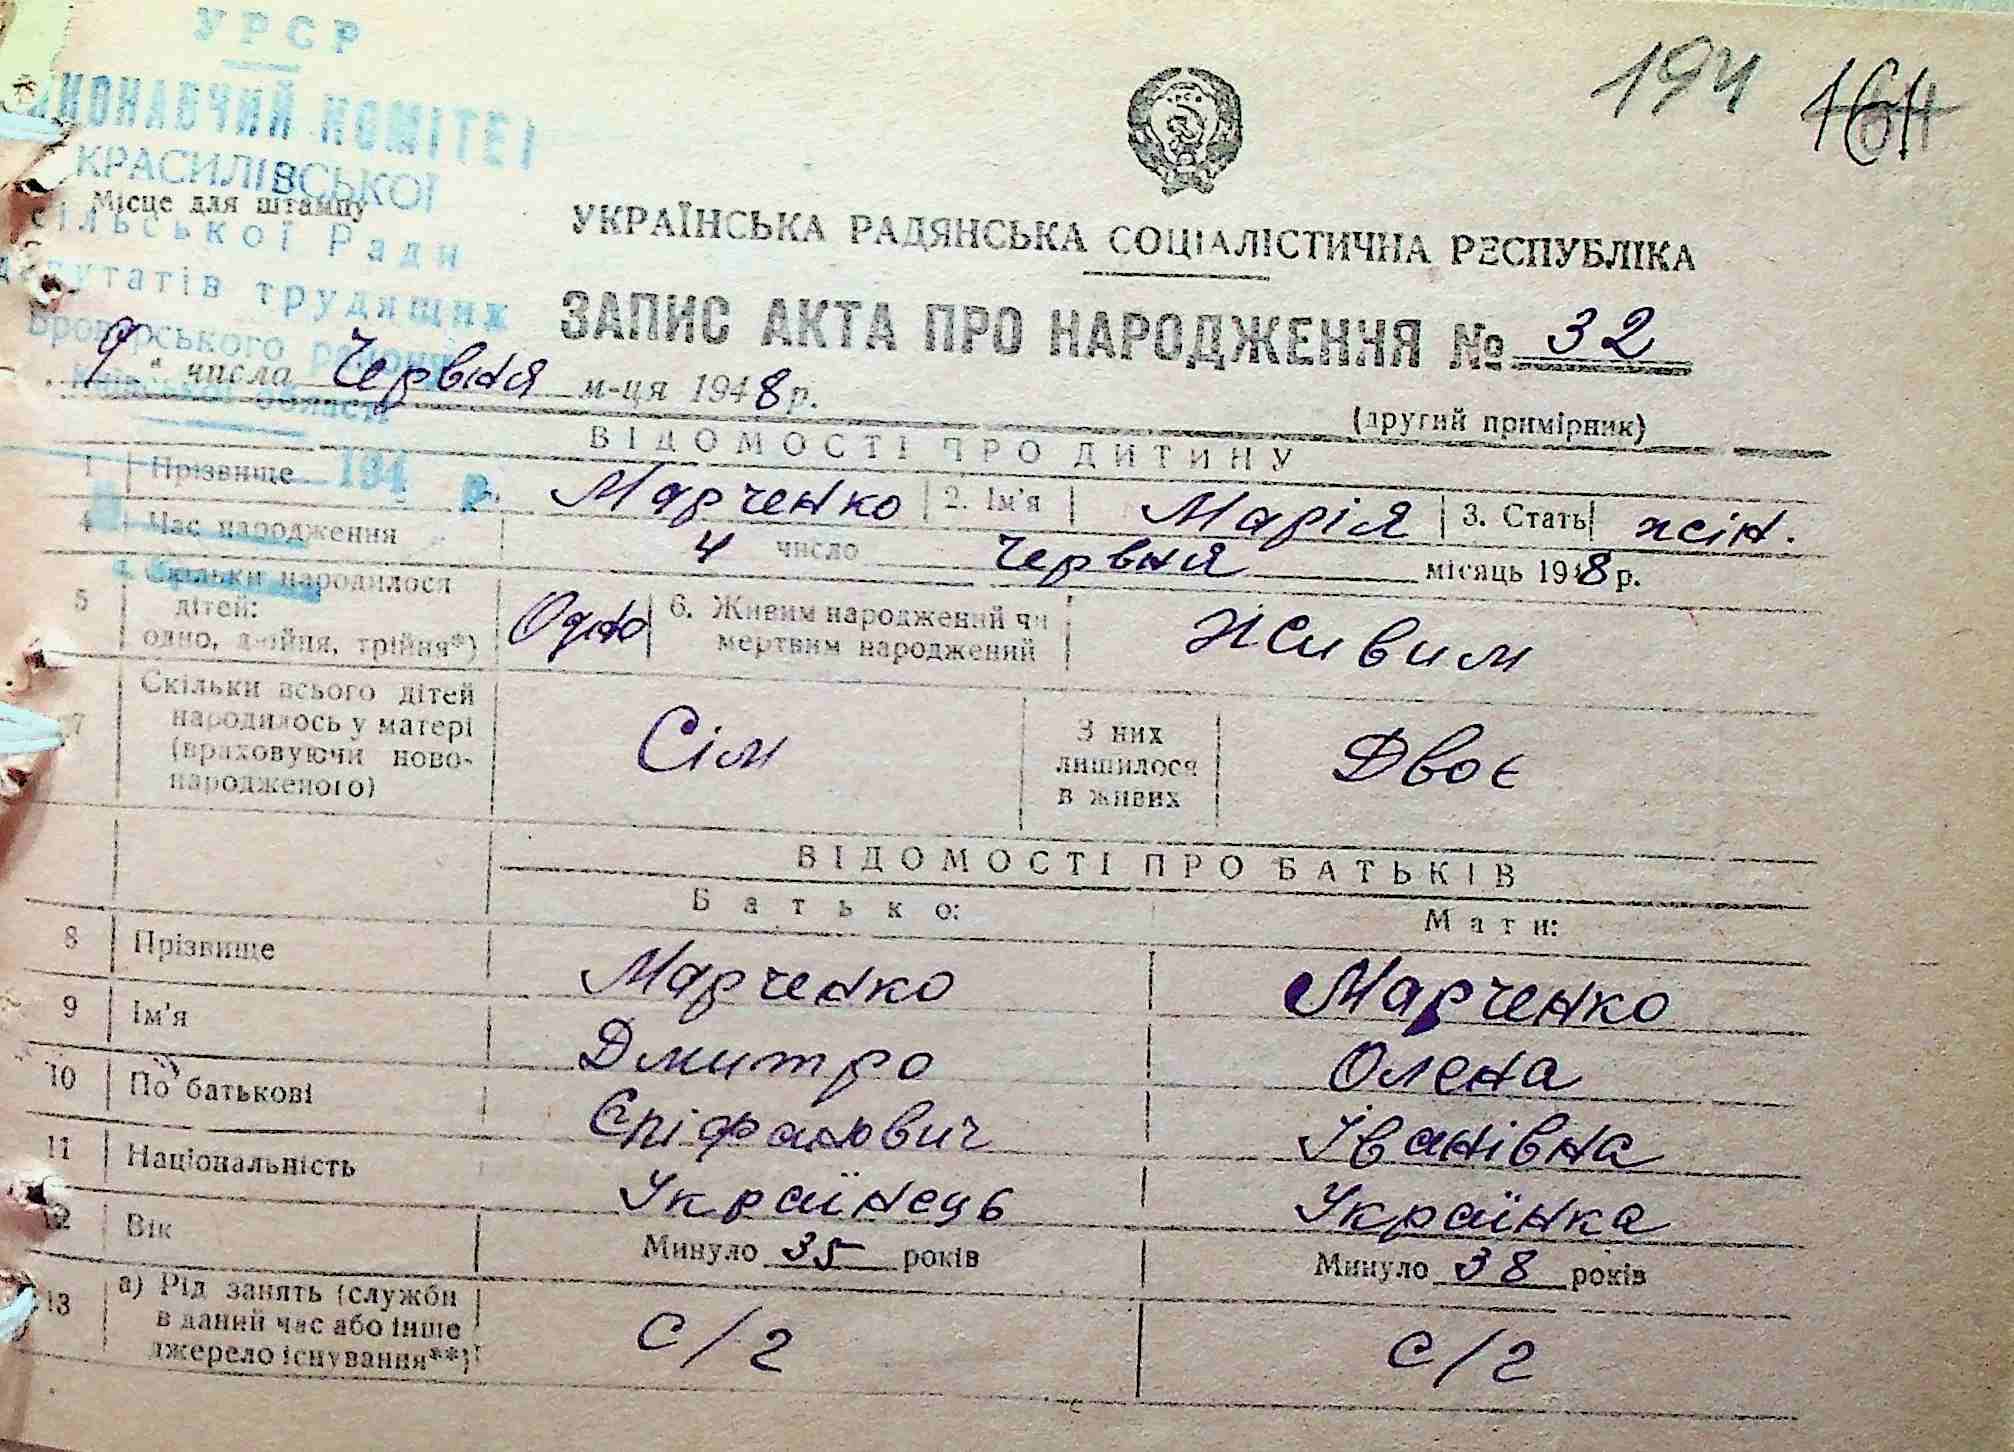 УРСР
194 1611
ВИКОНАВЧИЙ КОМІТЕТ
КРАСИЛІВСЬКОЇ
Місце для штампу
сільської Ради
депутатів трудящих
Броварського району
Київської області
194 р.
УКРАЇНСЬКА РАДЯНСЬКА СОЦІАЛІСТИЧНА РЕСПУБЛІКА
ЗАПИС АКТА ПРО НАРОДЖЕННЯ № 32
„9" числа Червня м-ця 1948 р.
(другий примірник)
ВІДОМОСТІ ПРО ДИТИНУ
1 Прізвище Марченко 2. Ім'я Марія 3. Стать жін.
4 Час народження 4 число Червня місяць 1948 р.
5 Скільки народилося дітей: одно, двойня, трійня*) Одно 6. Живим народжений чи мертвим народжений Живим
7 Скільки всього дітей народилось у матері (враховуючи ново-народженого) Сім З них лишилося в живих Двоє
ВІДОМОСТІ ПРО БАТЬКІВ
Батько: Мати:
8 Прізвище Марченко Марченко
9 Ім'я Дмитро Олена
10 По батькові Єпіфанович Іванівна
11 Національність Українець Українка
12 Вік Минуло 35 років Минуло 38 років
13 а) Рід занять (служби в даний час або інше джерело існування**) с/г с/г